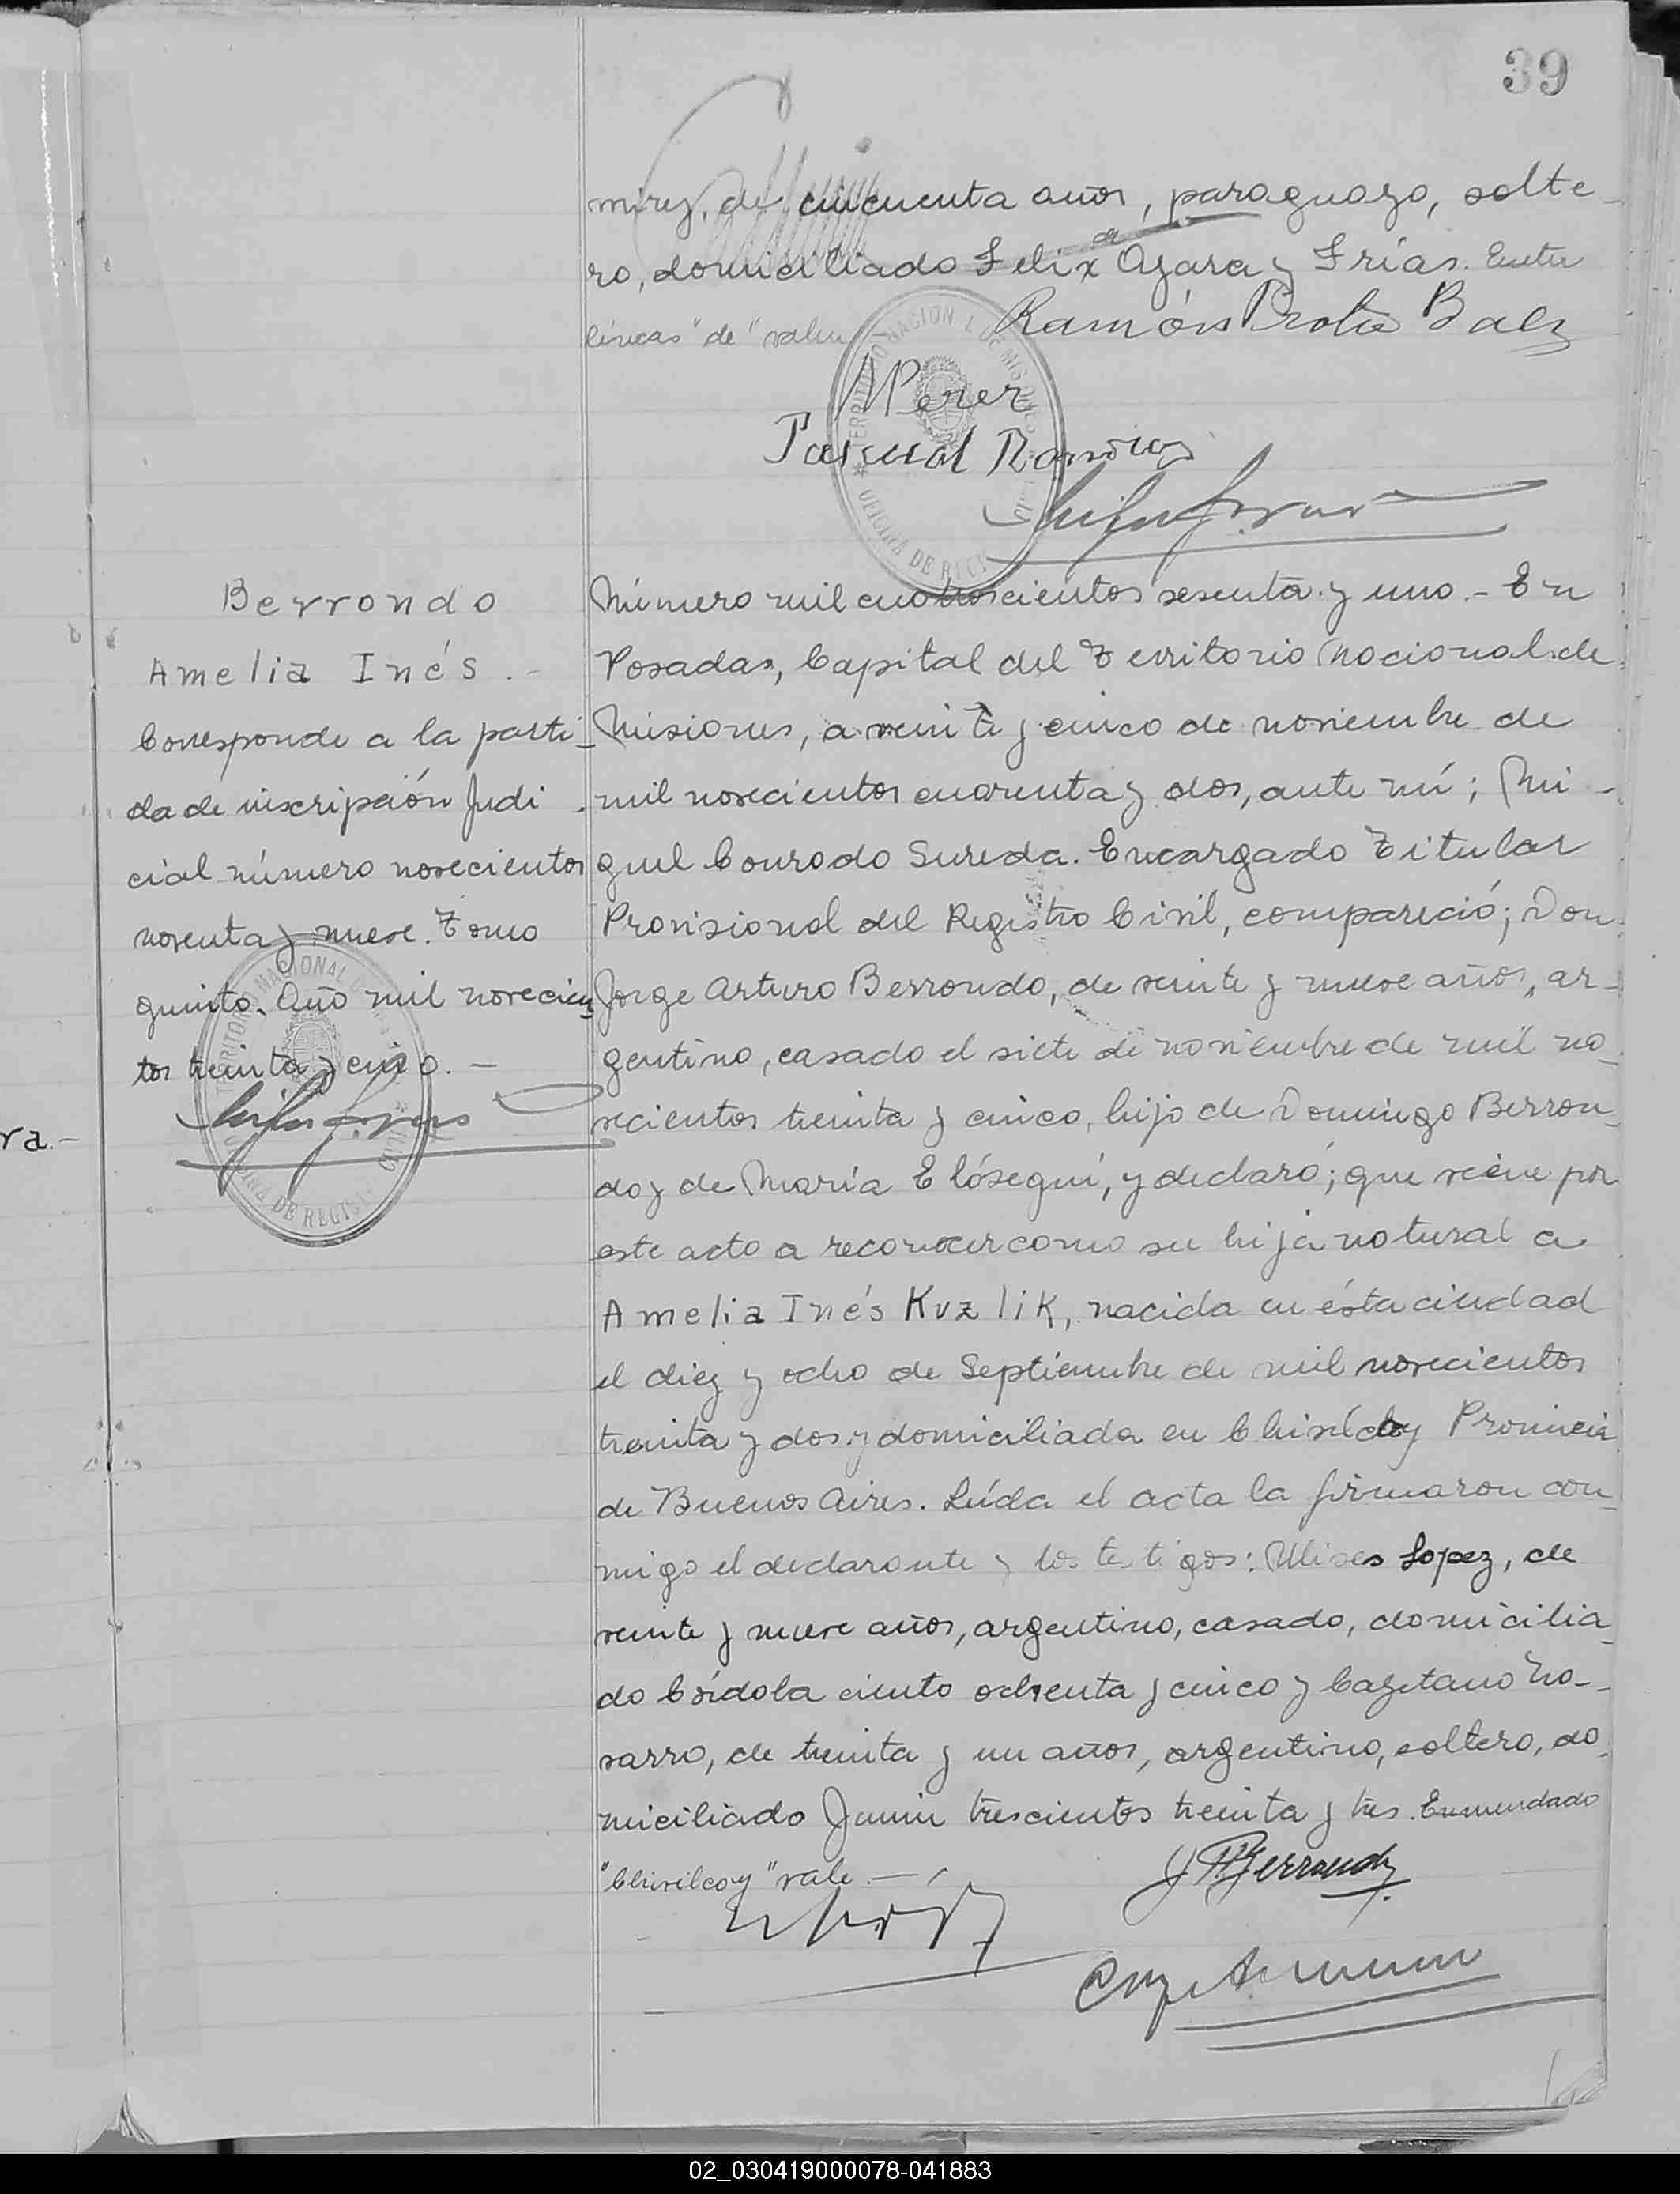 39
mirez, de cincuenta años, paraguayo, solte-
ro, domiciliado Felix de Azara y Frías. Entre
líneas "de" vale.
Ramón Baez
Perez
Pascual Ramirez
TERRITORIO NACIONAL DE MISIONES
OFICINA DE REGISTRO CIVIL
Berrondo
Amelia Inés.-
Corresponde a la parti-
da de inscripción Judi-
cial número novecientos
noventa y nueve. Tomo
quinto. Año mil novecien-
tos treinta y cinco.-
TERRITORIO NACIONAL
OFICINA DE REGISTRO CIVIL
ra.-
Número mil cuatrocientos sesenta y uno.- En
Posadas, Capital del Territorio Nacional de
Misiones, a veinte y cinco de noviembre de
mil novecientos cuarenta y dos, ante mí; Mi-
guel Conrado Sureda. Encargado Titular
Provisional del Registro Civil, compareció; Don
Jorge Arturo Berrondo, de veinte y nueve años, ar-
gentino, casado el siete de noviembre de mil no-
vecientos treinta y cinco, hijo de Domingo Berron-
do y de María Elósegui, y declaró; que viene por
este acto a reconocer como su hija natural a
Amelia Inés Kuzlik, nacida en ésta ciudad
el diez y ocho de Septiembre de mil novecientos
treinta y dos y domiciliada en Chivilcoy Provincia
de Buenos Aires. Leída el acta la firmaron con-
migo el declarante y los testigos: Ulises Lopez, de
veinte y nueve años, argentino, casado, domicilia-
do Córdoba ciento ochenta y cinco y Cayetano No-
varro, de treinta y un años, argentino, soltero, do-
miciliado Junin trescientos treinta y tres. Enmendado
"Chivilcoy" vale.-
J A Berrondo
02_030419000078-041883